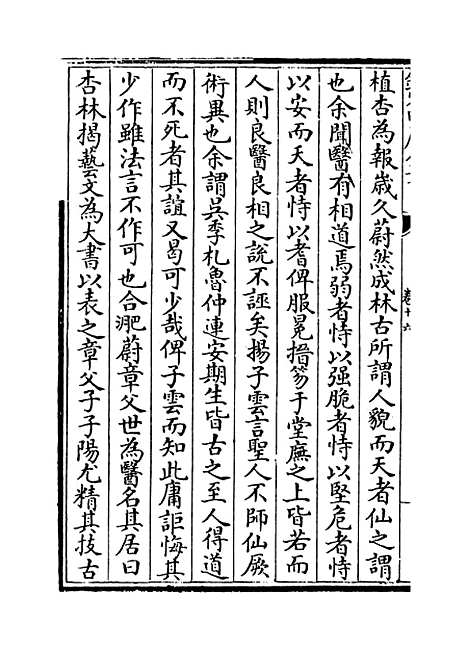 植杏為報歲久蔚然成林古所謂人貌而天者仙之謂
也余聞醫有相道焉弱者恃以强脆者恃以堅危者恃
以安而夭者恃以耆俾服冕搢笏于堂廡之上皆若而
人則良醫良相之說不誣矣揚子雲言聖人不師仙厥
術異也余謂吳季札魯仲連安期生皆古之至人得道
而不死者其誼又曷可少哉俾子雲而知此庸詎悔其
少作雖法言不作可也合淝蔚章父世為醫名其居曰
杏林揭藝文為大書以表之章父子子陽尤精其技古
卷十六